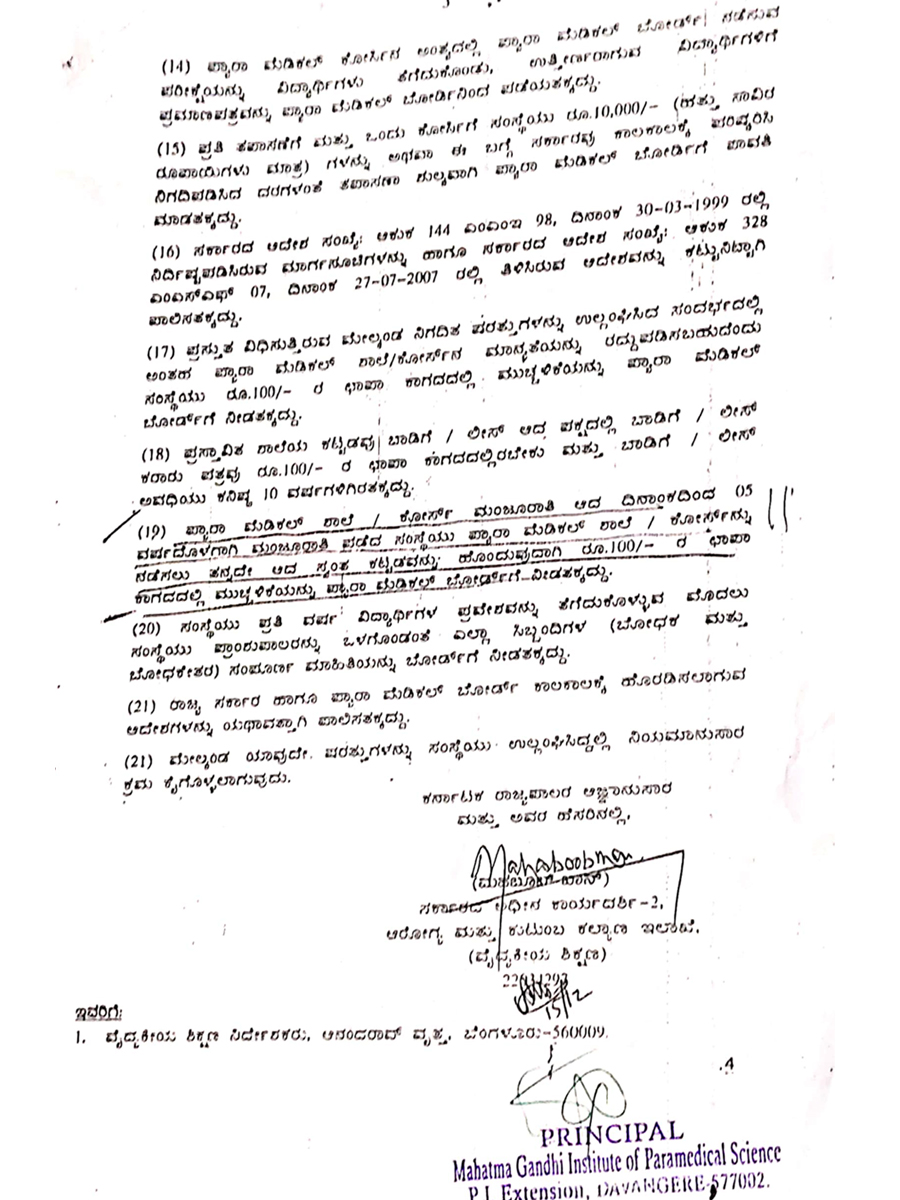 (14) ಪ್ಯಾರಾ ಮೆಡಿಕಲ್ ಕೋರ್ಸಿನ ಅಂತ್ಯದಲ್ಲಿ ಪ್ಯಾರಾ ಮೆಡಿಕಲ್ ಬೋರ್ಡ್ ನಡೆಸುವ
ಪರೀಕ್ಷೆಯನ್ನು ವಿದ್ಯಾರ್ಥಿಗಳು ತೆಗೆದುಕೊಂಡು, ಉತ್ತೀರ್ಣರಾಗುವ ವಿದ್ಯಾರ್ಥಿಗಳಿಗೆ
ಪ್ರಮಾಣಪತ್ರವನ್ನು ಪ್ಯಾರಾ ಮೆಡಿಕಲ್ ಬೋರ್ಡಿನಿಂದ ಪಡೆಯತಕ್ಕದ್ದು.
(15) ಪ್ರತಿ ತಪಾಸಣೆಗೆ ಮತ್ತು ಒಂದು ಕೋರ್ಸಿಗೆ ಸಂಸ್ಥೆಯು ರೂ.10,000/- (ಹತ್ತು ಸಾವಿರ
ರೂಪಾಯಿಗಳು ಮಾತ್ರ) ಗಳನ್ನು ಅಥವಾ ಈ ಬಗ್ಗೆ ಸರ್ಕಾರವು ಕಾಲಕಾಲಕ್ಕೆ ಪರಿಷ್ಕರಿಸಿ
ನಿಗದಿಪಡಿಸಿದ ದರಗಳಂತೆ ತಪಾಸಣಾ ಶುಲ್ಕವಾಗಿ ಪ್ಯಾರಾ ಮೆಡಿಕಲ್ ಬೋರ್ಡಿಗೆ ಪಾವತಿ
ಮಾಡತಕ್ಕದ್ದು.
(16) ಸರ್ಕಾರದ ಆದೇಶ ಸಂಖ್ಯೆ: ಆಕುಕ 144 ಎಂಎಂಇ 98, ದಿನಾಂಕ 30-03-1999 ರಲ್ಲಿ
ನಿರ್ದಿಷ್ಟಪಡಿಸಿರುವ ಮಾರ್ಗಸೂಚಿಗಳನ್ನು ಹಾಗೂ ಸರ್ಕಾರದ ಆದೇಶ ಸಂಖ್ಯೆ: ಆಕುಕ 328
ಎಂಎಸ್ಎಫ್ 07, ದಿನಾಂಕ 27-07-2007 ರಲ್ಲಿ ತಿಳಿಸಿರುವ ಆದೇಶವನ್ನು ಕಟ್ಟುನಿಟ್ಟಾಗಿ
ಪಾಲಿಸತಕ್ಕದ್ದು.
(17) ಪ್ರಸ್ತುತ ವಿಧಿಸುತ್ತಿರುವ ಮೇಲ್ಕಂಡ ನಿಗದಿತ ಷರತ್ತುಗಳನ್ನು ಉಲ್ಲಂಘಿಸಿದ ಸಂದರ್ಭದಲ್ಲಿ
ಅಂತಹ ಪ್ಯಾರಾ ಮೆಡಿಕಲ್ ಶಾಲೆ/ಕೋರ್ಸ್‌ನ ಮಾನ್ಯತೆಯನ್ನು ರದ್ದುಪಡಿಸಬಹುದೆಂದು
ಸಂಸ್ಥೆಯು ರೂ.100/- ರ ಛಾಪಾ ಕಾಗದದಲ್ಲಿ ಮುಚ್ಚಳಿಕೆಯನ್ನು ಪ್ಯಾರಾ ಮೆಡಿಕಲ್
ಬೋರ್ಡ್‌ಗೆ ನೀಡತಕ್ಕದ್ದು.
(18) ಪ್ರಸ್ತಾವಿತ ಶಾಲೆಯ ಕಟ್ಟಡವು ಬಾಡಿಗೆ / ಲೀಸ್ ಆದ ಪಕ್ಷದಲ್ಲಿ ಬಾಡಿಗೆ / ಲೀಸ್
ಕರಾರು ಪತ್ರವು ರೂ.100/- ರ ಛಾಪಾ ಕಾಗದದಲ್ಲಿರಬೇಕು ಮತ್ತು ಬಾಡಿಗೆ / ಲೀಸ್
ಅವಧಿಯು ಕನಿಷ್ಟ 10 ವರ್ಷಗಳಿಗಿರತಕ್ಕದ್ದು.
(19) ಪ್ಯಾರಾ ಮೆಡಿಕಲ್ ಶಾಲೆ / ಕೋರ್ಸ್ ಮಂಜೂರಾತಿ ಆದ ದಿನಾಂಕದಿಂದ 05
ವರ್ಷದೊಳಗಾಗಿ ಮಂಜೂರಾತಿ ಪಡೆದ ಸಂಸ್ಥೆಯು ಪ್ಯಾರಾ ಮೆಡಿಕಲ್ ಶಾಲೆ / ಕೋರ್ಸ್‌ನ್ನು
ನಡೆಸಲು ತನ್ನದೇ ಆದ ಸ್ವಂತ ಕಟ್ಟಡವನ್ನು ಹೊಂದುವುದಾಗಿ ರೂ.100/- ರ ಛಾಪಾ
ಕಾಗದದಲ್ಲಿ ಮುಚ್ಚಳಿಕೆಯನ್ನು ಪ್ಯಾರಾ ಮೆಡಿಕಲ್ ಬೋರ್ಡ್‌ಗೆ ನೀಡತಕ್ಕದ್ದು.
(20) ಸಂಸ್ಥೆಯು ಪ್ರತಿ ವರ್ಷ ವಿದ್ಯಾರ್ಥಿಗಳ ಪ್ರವೇಶವನ್ನು ತೆಗೆದುಕೊಳ್ಳುವ ಮೊದಲು
ಸಂಸ್ಥೆಯು ಪ್ರಾಂಶುಪಾಲರನ್ನು ಒಳಗೊಂಡಂತೆ ಎಲ್ಲಾ ಸಿಬ್ಬಂದಿಗಳ (ಬೋಧಕ ಮತ್ತು
ಬೋಧಕೇತರ) ಸಂಪೂರ್ಣ ಮಾಹಿತಿಯನ್ನು ಬೋರ್ಡ್‌ಗೆ ನೀಡತಕ್ಕದ್ದು.
(21) ರಾಜ್ಯ ಸರ್ಕಾರ ಹಾಗೂ ಪ್ಯಾರಾ ಮೆಡಿಕಲ್ ಬೋರ್ಡ್ ಕಾಲಕಾಲಕ್ಕೆ ಹೊರಡಿಸಲಾಗುವ
ಆದೇಶಗಳನ್ನು ಯಥಾವತ್ತಾಗಿ ಪಾಲಿಸತಕ್ಕದ್ದು.
(21) ಮೇಲ್ಕಂಡ ಯಾವುದೇ ಷರತ್ತುಗಳನ್ನು ಸಂಸ್ಥೆಯು ಉಲ್ಲಂಘಿಸಿದ್ದಲ್ಲಿ ನಿಯಮಾನುಸಾರ
ಕ್ರಮ ಕೈಗೊಳ್ಳಲಾಗುವುದು.
ಕರ್ನಾಟಕ ರಾಜ್ಯಪಾಲರ ಆಜ್ಞಾನುಸಾರ
ಮತ್ತು ಅವರ ಹೆಸರಿನಲ್ಲಿ,
(ಮಹಬೂಬ್ ಖಾನ್)
ಸರ್ಕಾರದ ಅಧೀನ ಕಾರ್ಯದರ್ಶಿ-2,
ಆರೋಗ್ಯ ಮತ್ತು ಕುಟುಂಬ ಕಲ್ಯಾಣ ಇಲಾಖೆ,
(ವೈದ್ಯಕೀಯ ಶಿಕ್ಷಣ)
15/12
ಇವರಿಗೆ:
1. ವೈದ್ಯಕೀಯ ಶಿಕ್ಷಣ ನಿರ್ದೇಶಕರು, ಆನಂದರಾವ್ ವೃತ್ತ, ಬೆಂಗಳೂರು-560009.
.4
PRINCIPAL
Mahatma Gandhi Institute of Paramedical Science
P.J. Extension, DAVANGERE-577002.